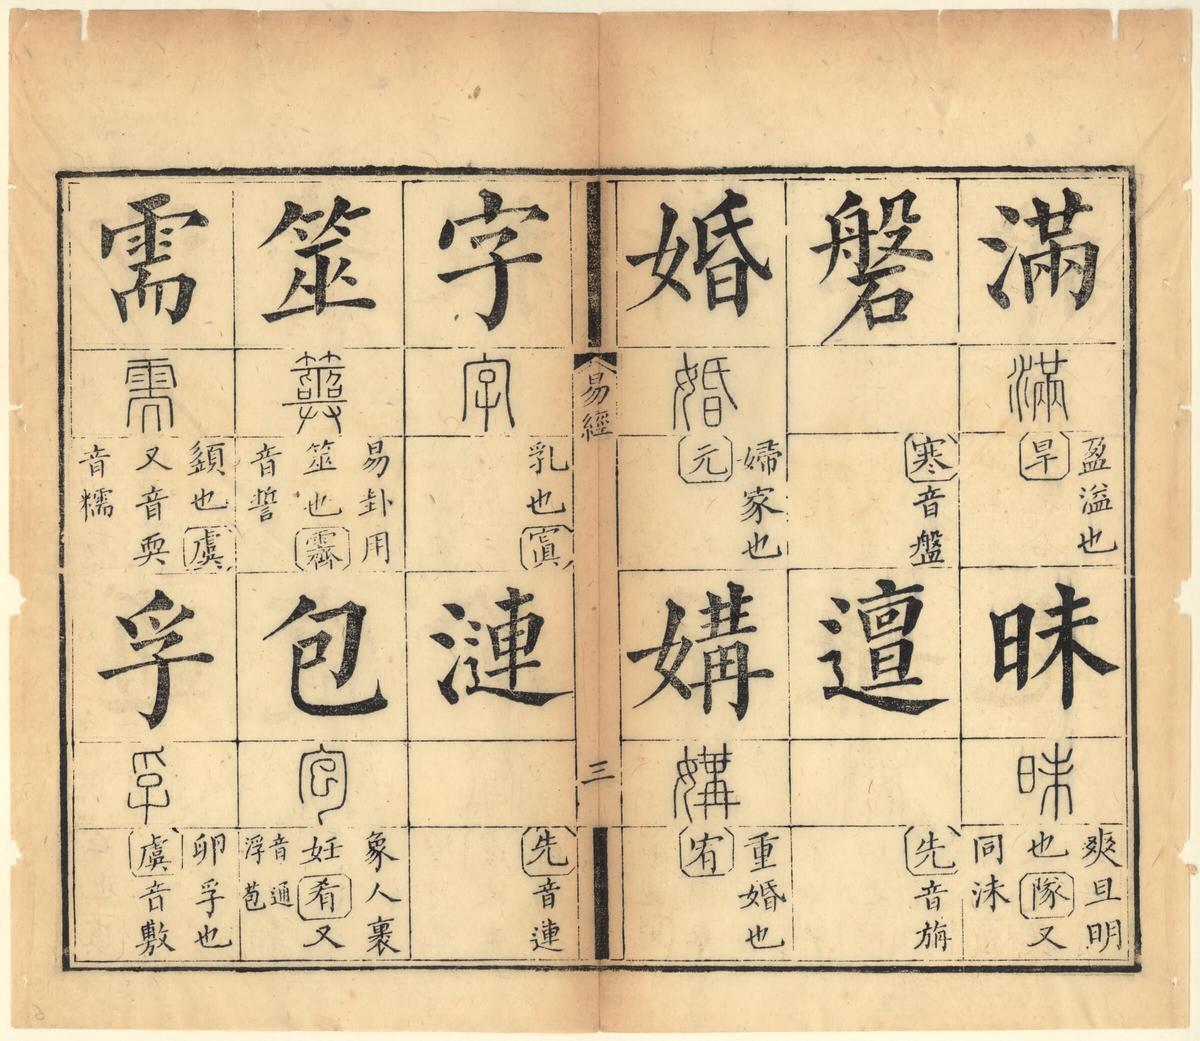 滿
滿
盈溢也
旱
昧
昧
爽旦明
也隊又
同沬
磐
寒音盤
邅
先音旃
婚
婚
婦家也
元
媾
媾
重婚也
宥
易經
三
字
字
乳也寘
漣
先音連
筮
筮
易卦用
筮也霽
音誓
包
包
象人裹
妊肴又
音通
浮苞
需
需
須也虞
又音耎
音糯
孚
孚
卵孚也
虞音敷